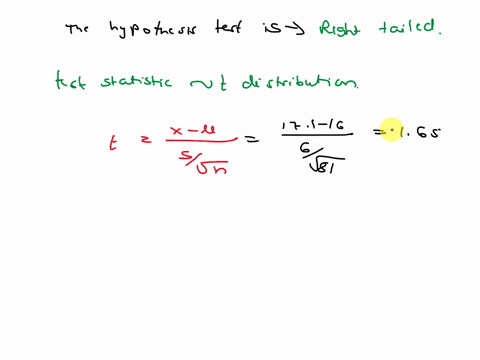 The hypothesis test is → Right tailed.
test statistic ~ t distribution.
t = x - μ / s/√n = 17.1-16 / 6/√81 = 1.65